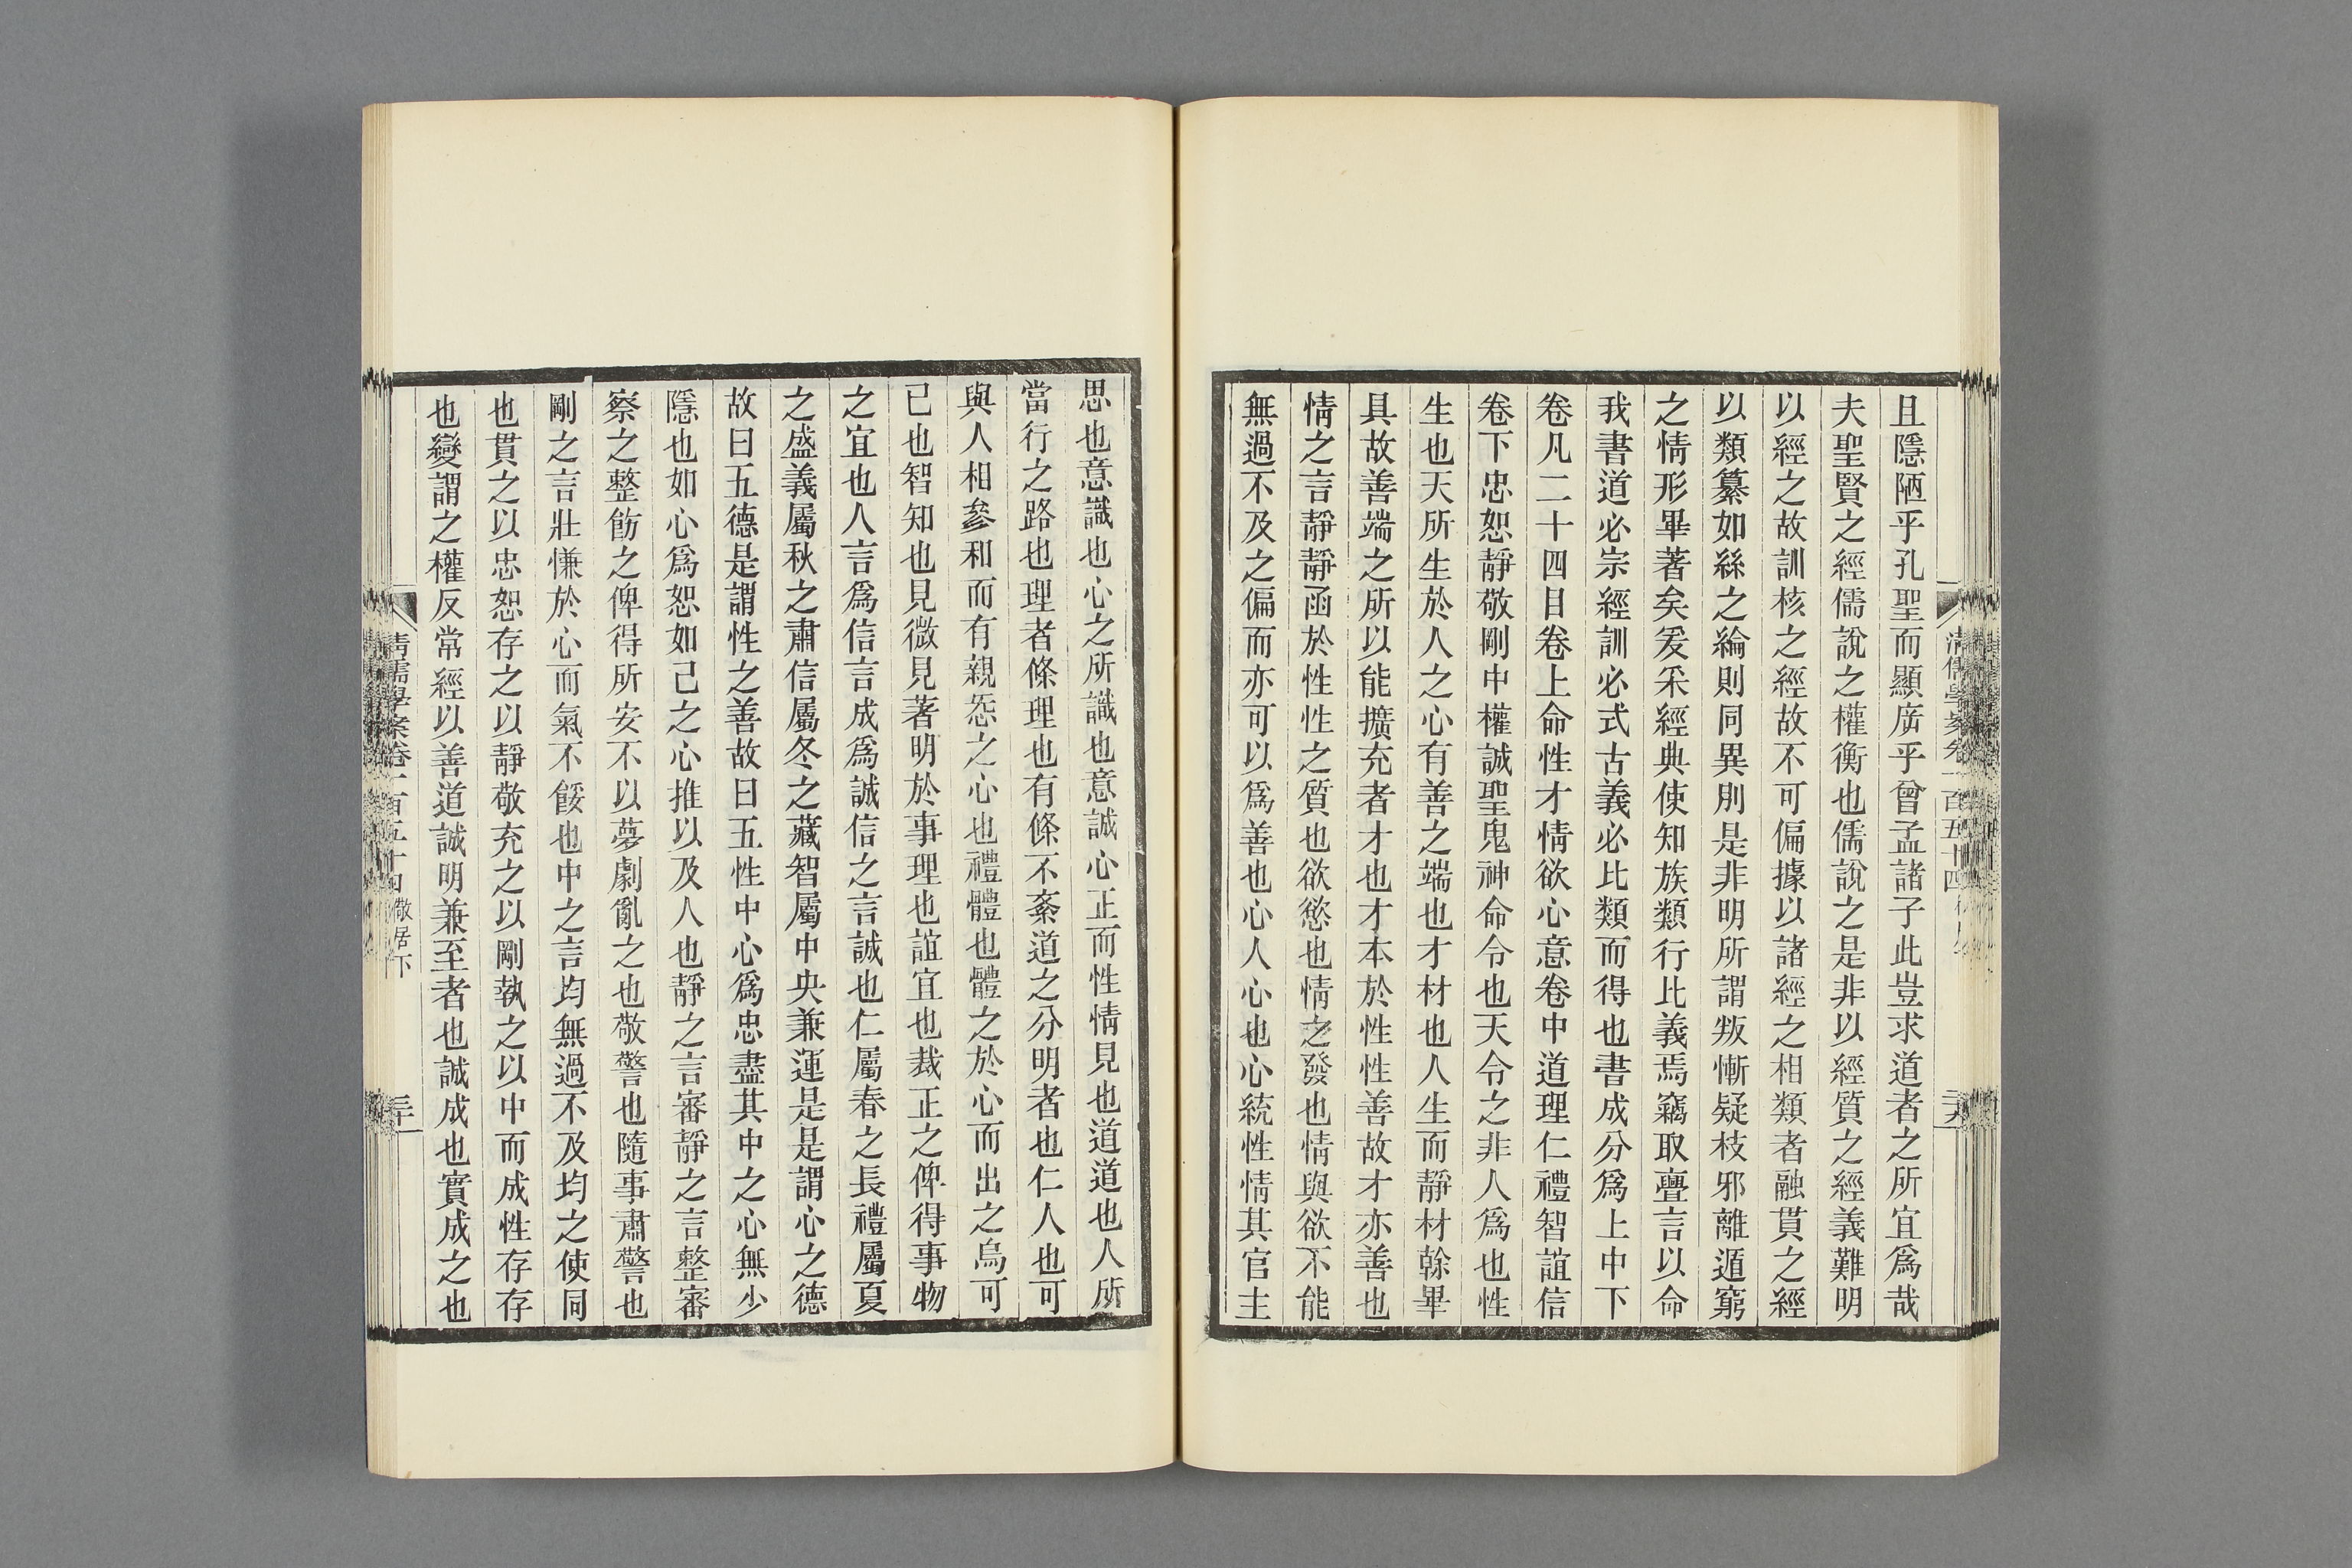 且隱陋乎孔聖而顯廣乎曾孟諸子此豈求道者之所宜爲哉
夫聖賢之經儒說之權衡也儒說之是非以經質之經義難明
以經之故訓核之經故不可偏據以諸經之相類者融貫之經
以類纂如絲之綸則同異刖是非明所謂叛慚疑枝邪離遁窮
之情形畢著矣爰采經典使知族類行比義焉竊取亹言以命
我書道必宗經訓必式古義必比類而得也書成分爲上中下
卷凡二十四目卷上命性才情欲心意卷中道理仁禮智誼信
卷下忠恕靜敬剛中權誠聖鬼神命令也天令之非人爲也性
生也天所生於人之心有善之端也才材也人生而靜材榦畢
具故善端之所以能擴充者才也才本於性性善故才亦善也
情之言靜靜函於性性之質也欲慾也情之發也情與欲不能
無過不及之偏而亦可以爲善也心人心也心統性情其官主
思也意識也心之所識也意誠心正而性情見也道道也人所
當行之路也理者條理也有條不紊道之分明者也仁人也可
與人相參和而有親恶之心也禮體也體之於心而出之烏可
已也智知也見微見著明於事理也誼宜也裁正之俾得事物
之宜也人言爲信言成爲誠信之言誠也仁屬春之長禮屬夏
之盛義屬秋之肅信屬冬之藏智屬中央兼運是是謂心之德
故曰五德是謂性之善故曰五性中心爲忠盡其中之心無少
隱也如心爲恕如己之心推以及人也靜之言審靜之言整審
察之整飭之俾得所安不以夢劇亂之也敬警也隨事肅警也
剛之言壯慊於心而氣不餒也中之言均無過不及均之使同
也貫之以忠恕存之以靜敬充之以剛執之以中而成性存存
也變謂之權反常經以善道誠明兼至者也誠成也實成之也
清儒學案卷一百五十四 儆居下
三十